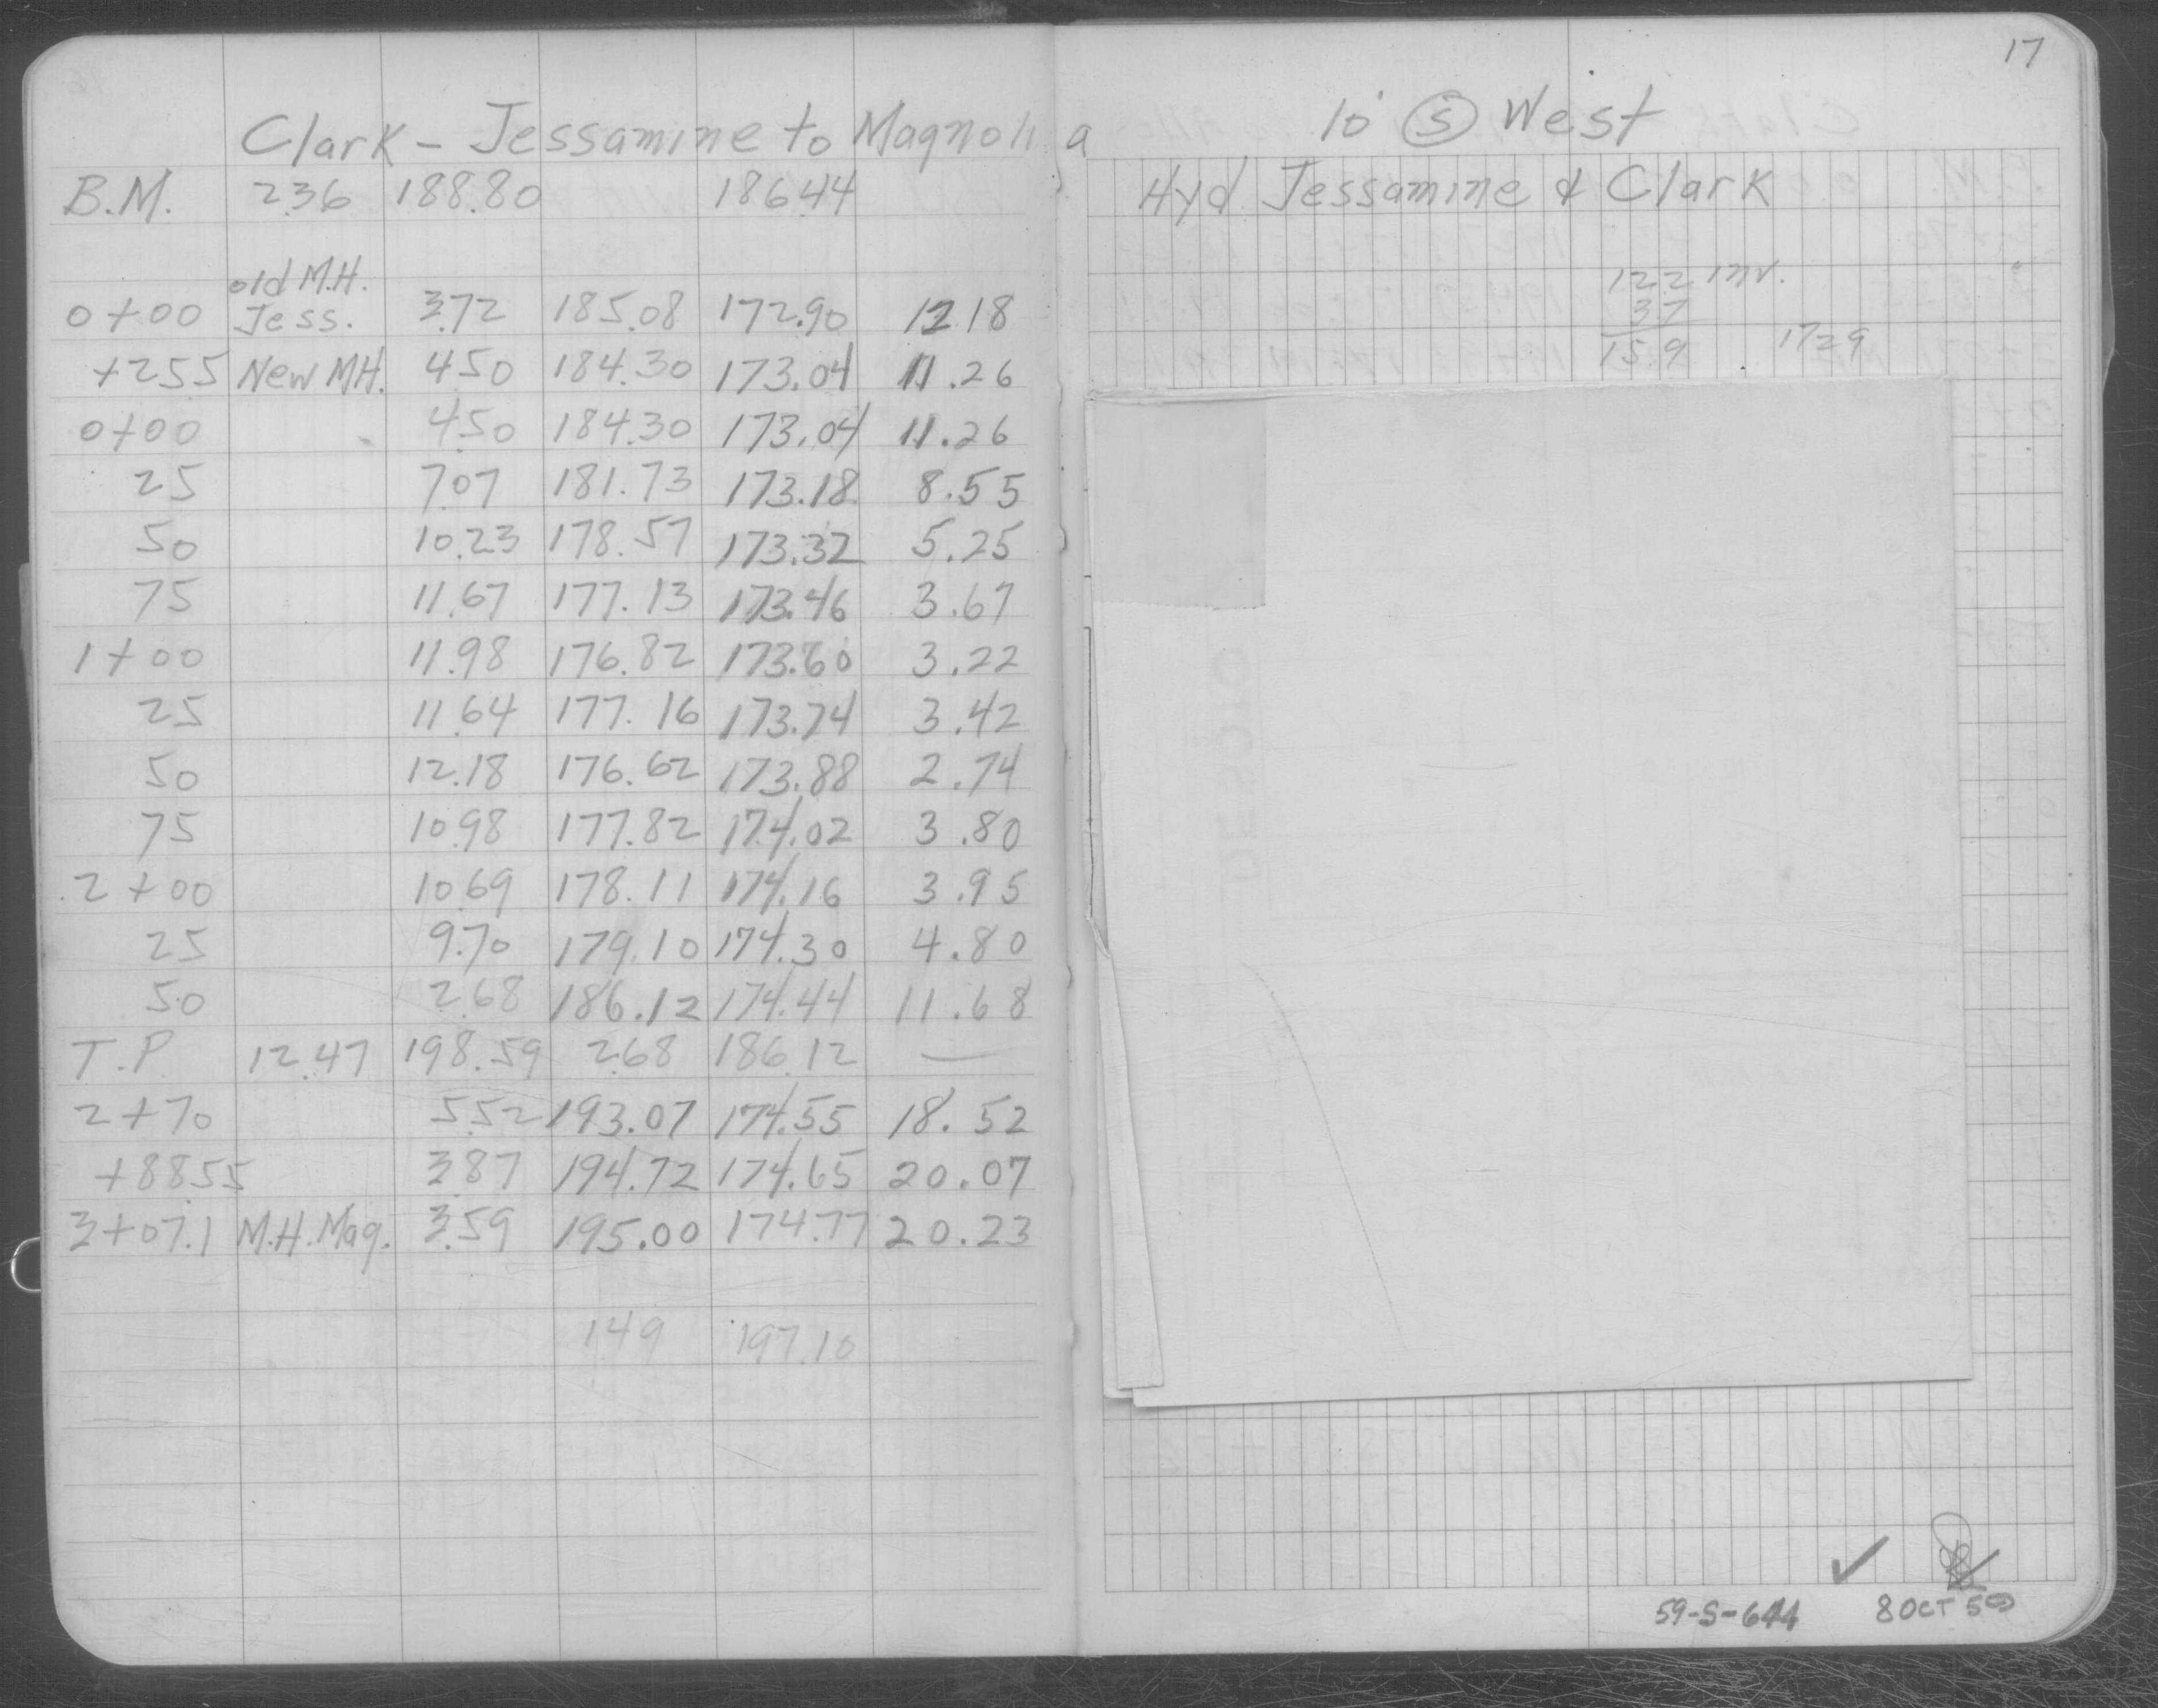 17
Clark - Jessamine to Magnolia
10' S West
B.M. 2.36 188.80 186.44
Hyd Jessamine & Clark
old M.H.
0+00 Jess. 3.72 185.08 172.90 12.18
+25.5 New M.H. 4.50 184.30 173.04 11.26
0+00 4.50 184.30 173.04 11.26
25 7.07 181.73 173.18 8.55
50 10.23 178.57 173.32 5.25
75 11.67 177.13 173.46 3.67
1+00 11.98 176.82 173.60 3.22
25 11.64 177.16 173.74 3.42
50 12.18 176.62 173.88 2.74
75 10.98 177.82 174.02 3.80
2+00 10.69 178.11 174.16 3.95
25 9.70 179.10 174.30 4.80
50 2.68 186.12 174.44 11.68
T.P. 12.47 198.59 2.68 186.12 —
2+70 5.52 193.07 174.55 18.52
+88.55 3.87 194.72 174.65 20.07
3+07.1 M.H. Mag. 3.59 195.00 174.77 20.23
1.49 197.10
12.2 inv.
3.7
15.9 172.9
59-S-644 8 OCT 59